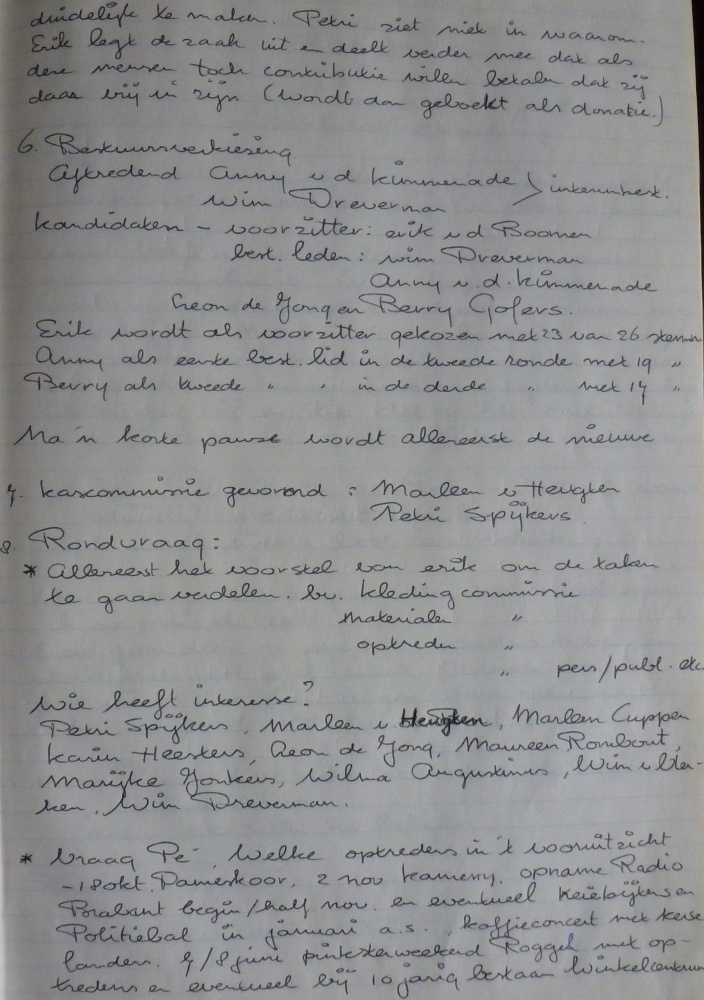 duidelijk te maken. Petri ziet niet in waarom.
Erik legt de zaak uit en deelt verder mee dat als
deze mensen toch contributie willen betalen dat zij
daar vrij in zijn (wordt dan geboekt als donatie.)
6. Bestuursverkiesing
Aftredend Anny v d Kimmenade } interimbest.
Wim Dreverman
kandidaten - voorzitter: erik v d Boomen
best. leden: wim Dreverman
Anny v.d. Kimmenade
Leon de Jong en Berry Gofers.
Erik wordt als voorzitter gekozen met 23 van 26 stemmen
Anny als eerste best. lid in de tweede ronde met 19 "
Berry als tweede " " in de derde " met 14 "
Na 'n korte pauze wordt allereerst de nieuwe
7. kascommissie gevormd: Marleen v Heugten
Petri Spijkers
8. Rondvraag:
* Allereerst het voorstel van erik om de taken
te gaan verdelen. bv. kledingcommissie
materialen "
optreden "
" pers/publ. etc
Wie heeft interesse?
Petri Spijkers, Marleen v Heugten, Marleen Cuppen
Karin Heesters, Leon de Jong, Maureen Rombout,
Marijke Jonkers, Wilma Augustinus, Wim v
ken, Wim Dreverman.
* Vraag Pé, Welke optredens in 't vooruitzicht
- 18 okt. Dameskoor, 2 nov opname Radio
Brabant begin/half nov. en eventueel en
Politiebal in januari a.s., koffieconcert met kerse
landen. 7/8 juni pinksterweekend Roggel met op-
tredens en eventueel bij 10 jarig bestaan Winkelcentrum